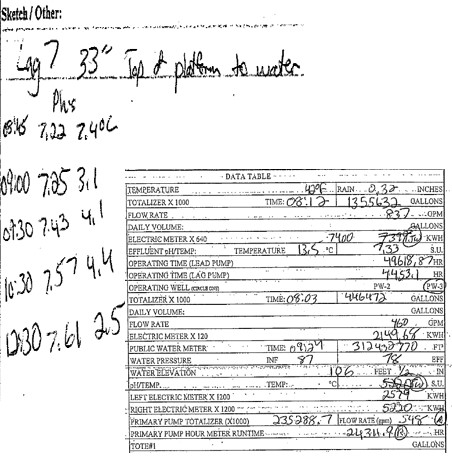 Sketch / Other:
Lag 7 33" Top of platform to water
Phs
08:45 7.22 7.4°C
09:00 7.25 3.1
09:30 7.43 4.1
10:30 7.57 4.4
12:30 7.61 2.5
DATA TABLE
TEMPERATURE 42°F RAIN 0.32 INCHES
TOTALIZER X 1000 TIME: 08:12 1355632 GALLONS
FLOW RATE 837 GPM
DAILY VOLUME: GALLONS
ELECTRIC METER X 640 7400 7399 KWH
EFFLUENT pH/TEMP: TEMPERATURE 13.5 °C 7.33 S.U.
OPERATING TIME (LEAD PUMP) 49618.87 HR
OPERATING TIME (LAG PUMP) 4453.1 HR
OPERATING WELL (CIRCLE ONE) PW-2 PW-3
TOTALIZER X 1000 TIME: 08:03 446472 GALLONS
DAILY VOLUME: GALLONS
FLOW RATE 460 GPM
ELECTRIC METER X 120 2149.68 KWH
PUBLIC WATER METER TIME: 09:29 312432770 FT³
WATER PRESSURE INF 87 78 EFF
WATER ELEVATION 106 FEET ½ IN
pH/TEMP. TEMP: °C S.U.
LEFT ELECTRIC METER X 1200 2579 KWH
RIGHT ELECTRIC METER X 1200 5220 KWH
PRIMARY PUMP TOTALIZER (X1000) 235288.7 FLOW RATE (gpm) 548
PRIMARY PUMP HOUR METER RUNTIME 24311.9 HR
TOTE#1 GALLONS